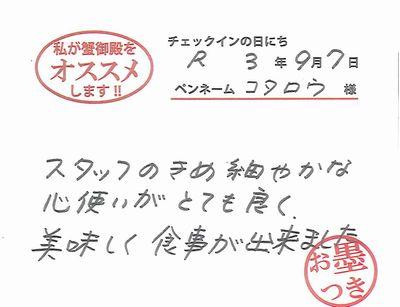 私が蟹御殿を
オススメ
します!!
チェックインの日にち
R 3年9月7日
ペンネーム コタロウ 様
スタッフのきめ細やかな
心使いがとても良く、
美味しく食事が出来ました
お墨
つき